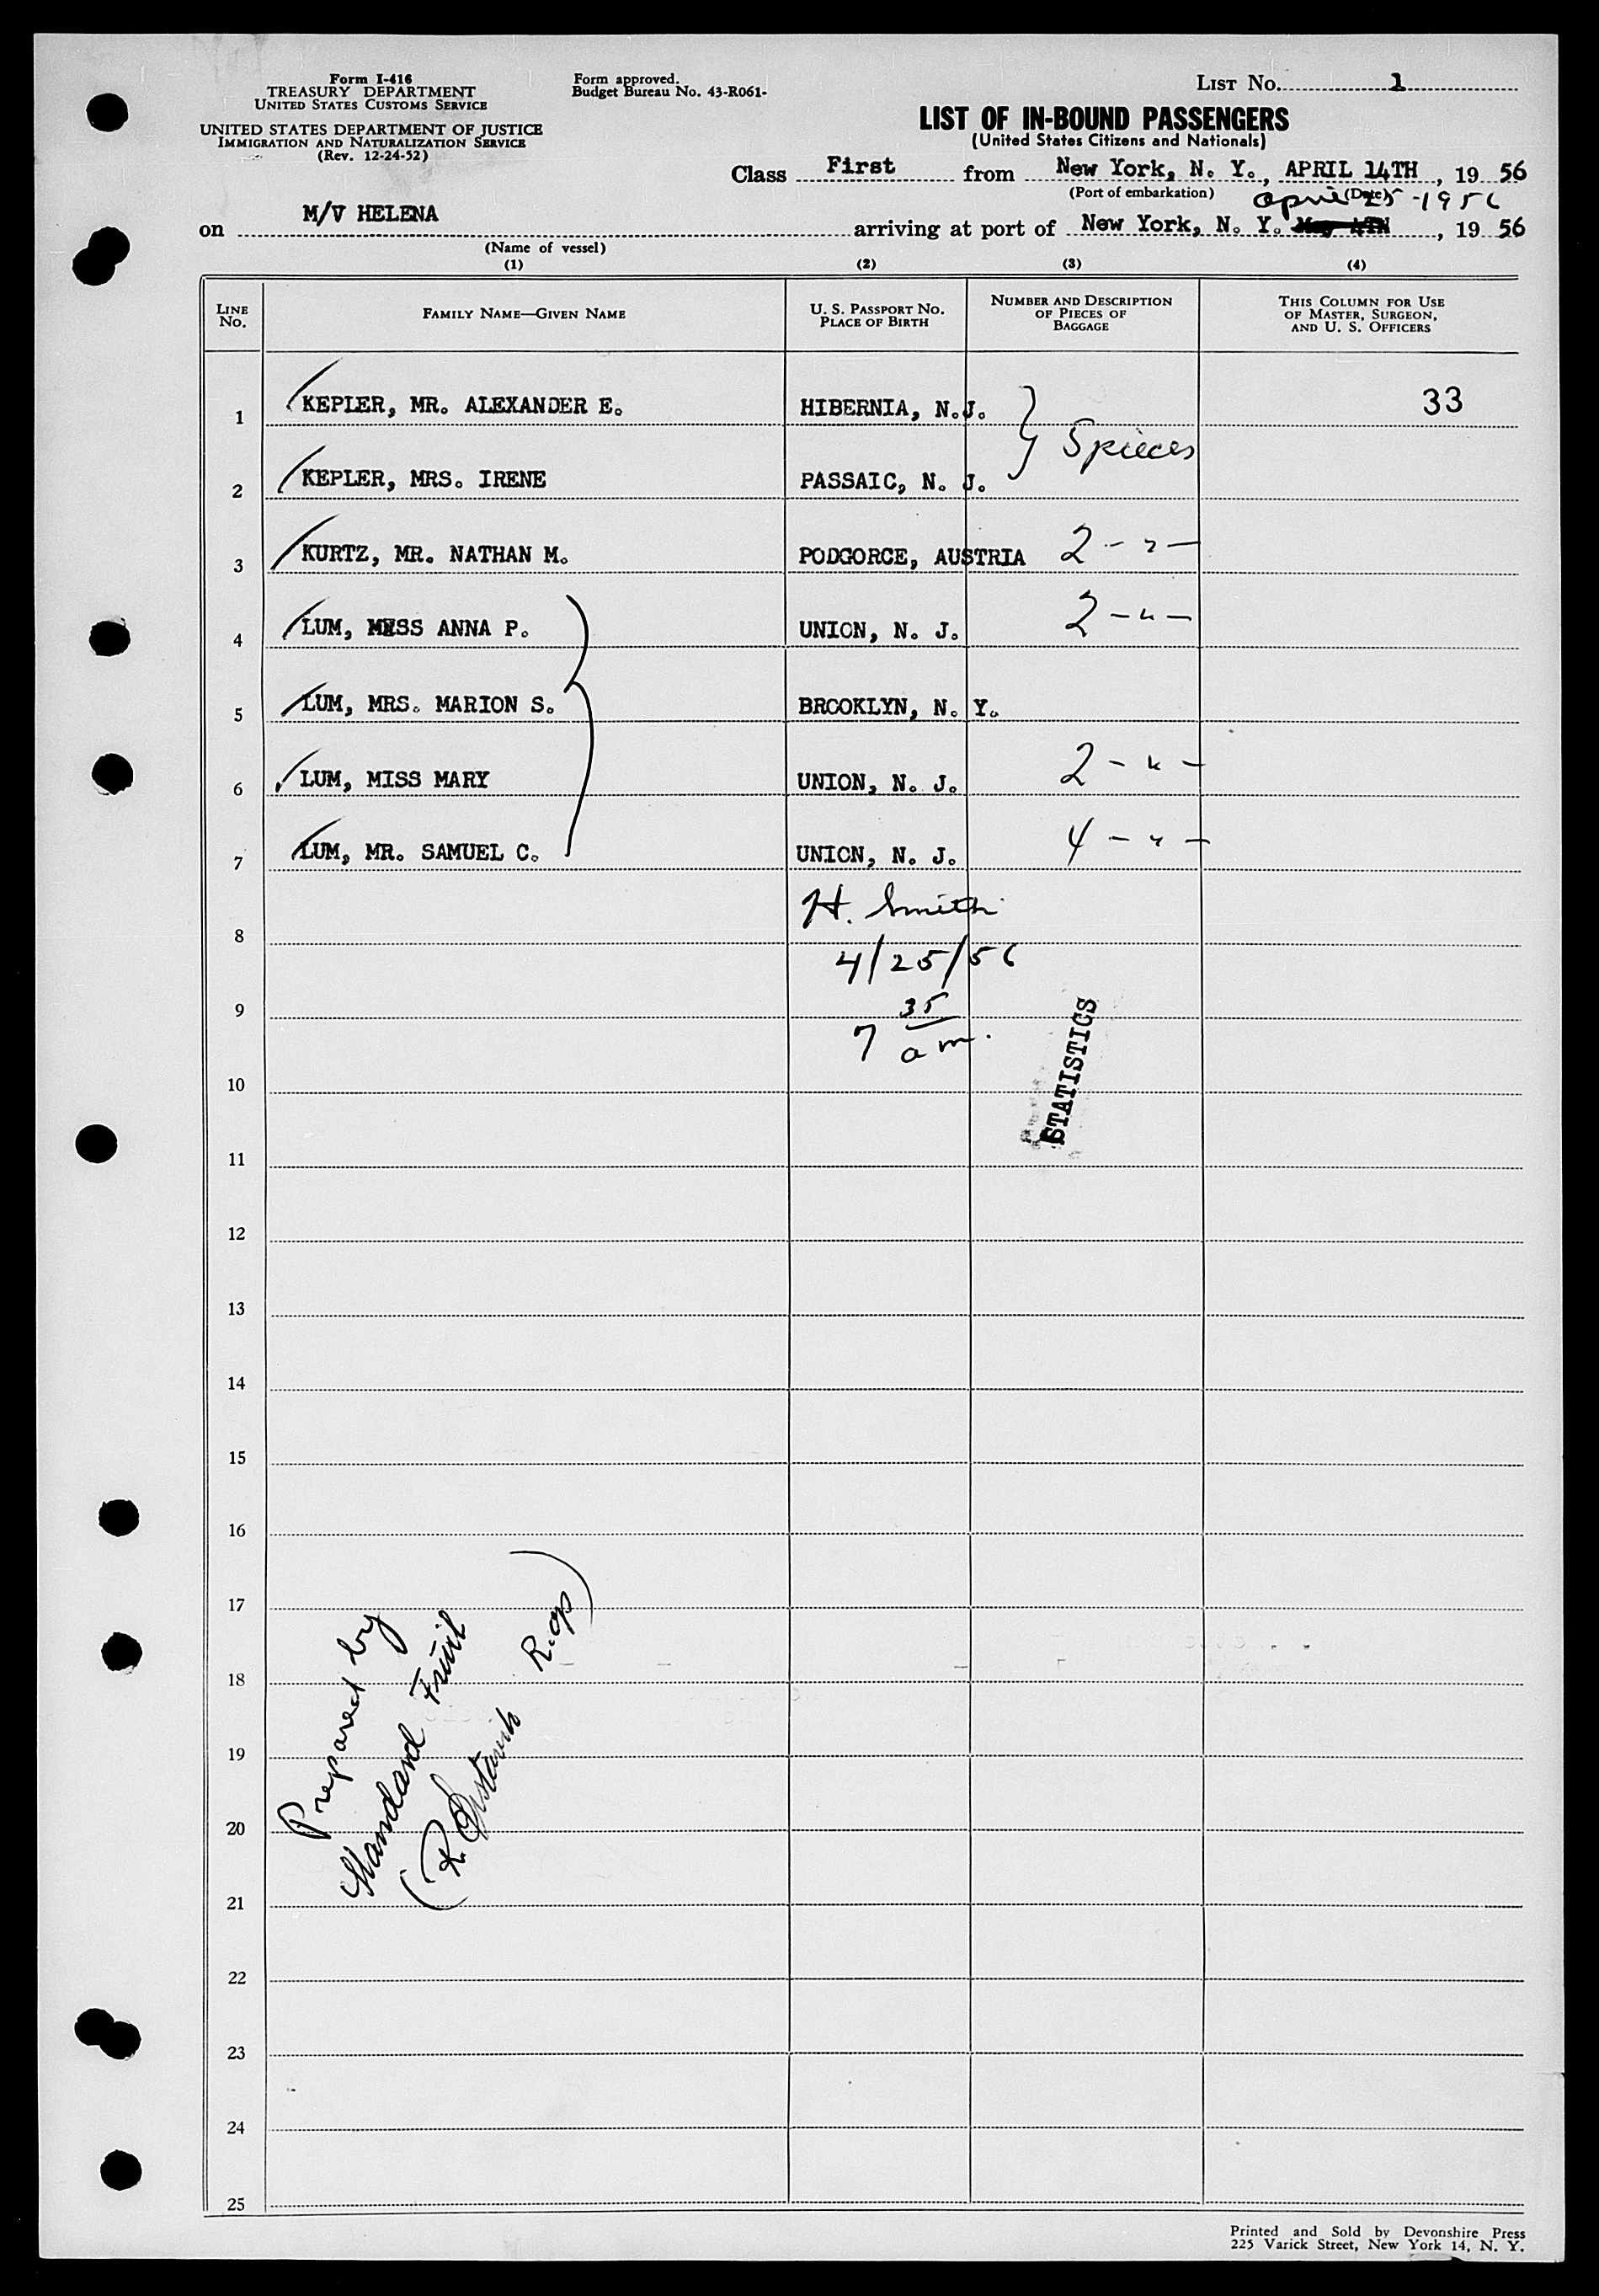 Form I-416
TREASURY DEPARTMENT
UNITED STATES CUSTOMS SERVICE
UNITED STATES DEPARTMENT OF JUSTICE
IMMIGRATION AND NATURALIZATION SERVICE
(Rev. 12-24-52)
Form approved.
Budget Bureau No. 43-R061-
LIST No. 1
LIST OF IN-BOUND PASSENGERS
(United States Citizens and Nationals)
Class First from New York, N. Y., APRIL 14TH, 19 56
(Port of embarkation) (Date)
April 25-1956
on M/V HELENA arriving at port of New York, N. Y. , 19 56
(Name of vessel)
(1) (2) (3) (4)
LINE No. FAMILY NAME—GIVEN NAME U. S. PASSPORT NO. PLACE OF BIRTH NUMBER AND DESCRIPTION OF PIECES OF BAGGAGE THIS COLUMN FOR USE OF MASTER, SURGEON, AND U. S. OFFICERS
1 KEPLER, MR. ALEXANDER E. HIBERNIA, N.J. 33
5 pieces
2 KEPLER, MRS. IRENE PASSAIC, N. J.
3 KURTZ, MR. NATHAN M. PODGORCE, AUSTRIA 2 - " -
4 LUM, MISS ANNA P. UNION, N. J. 2 - " -
5 LUM, MRS. MARION S. BROOKLYN, N. Y.
6 LUM, MISS MARY UNION, N. J. 2 - " -
7 LUM, MR. SAMUEL C. UNION, N. J. 4 - " -
8 H. Smith
4/25/56
9
7 35 am.
STATISTICS
10
11
12
13
14
15
16
17
18
19
20
21
22
23
24
25
Prepared by
Standard Fruit
Printed and Sold by Devonshire Press
225 Varick Street, New York 14, N. Y.